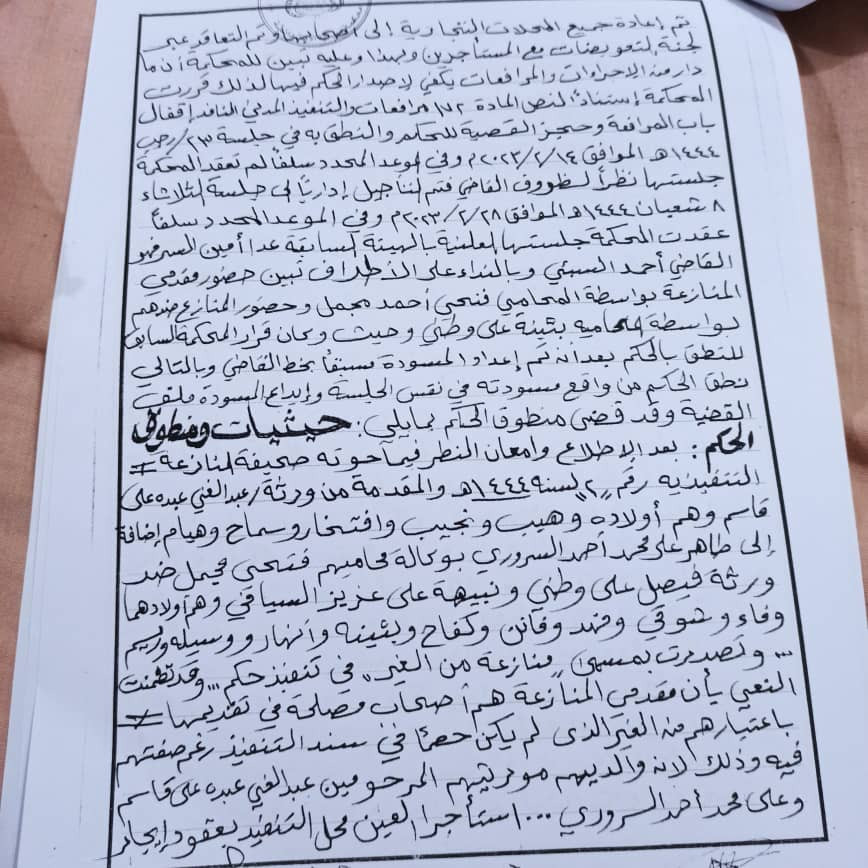 تم إعادة جميع المحلات التجارية إلى أصحابها وتم التعاقد عبر
لجنة لتعويضات مع المستأجرين ولهذا وعليه تبين للمحكمة أن ما
دار من الاجراءات والمرافعات يكفي لاصدار الحكم فيها لذلك قررت
المحكمة إستناداً لنص المادة ١٧٢ مرافعات والتنفيذ المدني النافذ إقفال
باب المرافعة وحجز القضية للحكم والنطق به في جلسة ٢٣/رجب
١٤٤٤هـ الموافق ٢٠٢٣/٢/١٤م وفي لموعد المحدد سلفاً لم تعقد المحكمة
جلستها نظراً لظروف القاضي فتم لتأجيل إدارياً الى جلسة الثلاثاء
٨ شعبان ١٤٤٤هـ الموافق ٢٠٢٣/٢/٢٨م وفي الموعد المحدد سلفاً
عقدت المحكمة جلستها لعلنية بالهيئة لسابقة عدا أمين السر فهو
القاضي أحمد السبئي وبالنداء على الأطراف تبين حضور مقدمي
المنازعة بواسطة المحامي فتحي أحمد مجمل وحضور المنازع ضدهم
بواسطة المحاميه بثينة علي وطني وحيث وكان قرار المحكمة السابق
للنطق بالحكم بعد أن تم إعداد المسودة مسبقاً بخط القاضي وبالتالي
نطق الحكم من واقع مسودته في نفس الجلسة وإيداع المسودة ملف
القضية وقد قضى منطوق الحكم بمايلي: حيثيات ومنطوق
الحكم: بعد الإطلاع وامعان النظر فيما حوته صحيفة لمنازعة =
التنفيذيه رقم "٢" لسنه ١٤٤٤هـ والمقدمة من ورثة/عبدالغني عبده علي
قاسم وهم أولاده وهيب ونجيب وافتخار وسماح وهيام إضافة
إلى طاهر علي محمد أحمد السروري بوكالة محاميهم فتحي مجمل ضد
ورثة فيصل علي وطني ونبيهة علي عزيز السياقي وهم أولادهما
وفاء وشوقي وفهد وفاتن وكفاح وبثينه وأنهار ووسيله وريم
... وتصديرت بمسمى "منازعة من الغير" في تنفيذ حكم ... وقد تضمنت
النعي بأن مقدمي المنازعة هم أصحاب مصلحة في تقديمها =
باعتبارهم من الغير الذي لم يكن خصماً في سند التنفيذ رغم صفتهم
فيه وذلك لأن والديهم مورثيهم المرحومين عبدالغني عبده علي قاسم
وعلي محمد أحمد السروري ... استأجرا لعين محل التنفيذ بعقود إيجار